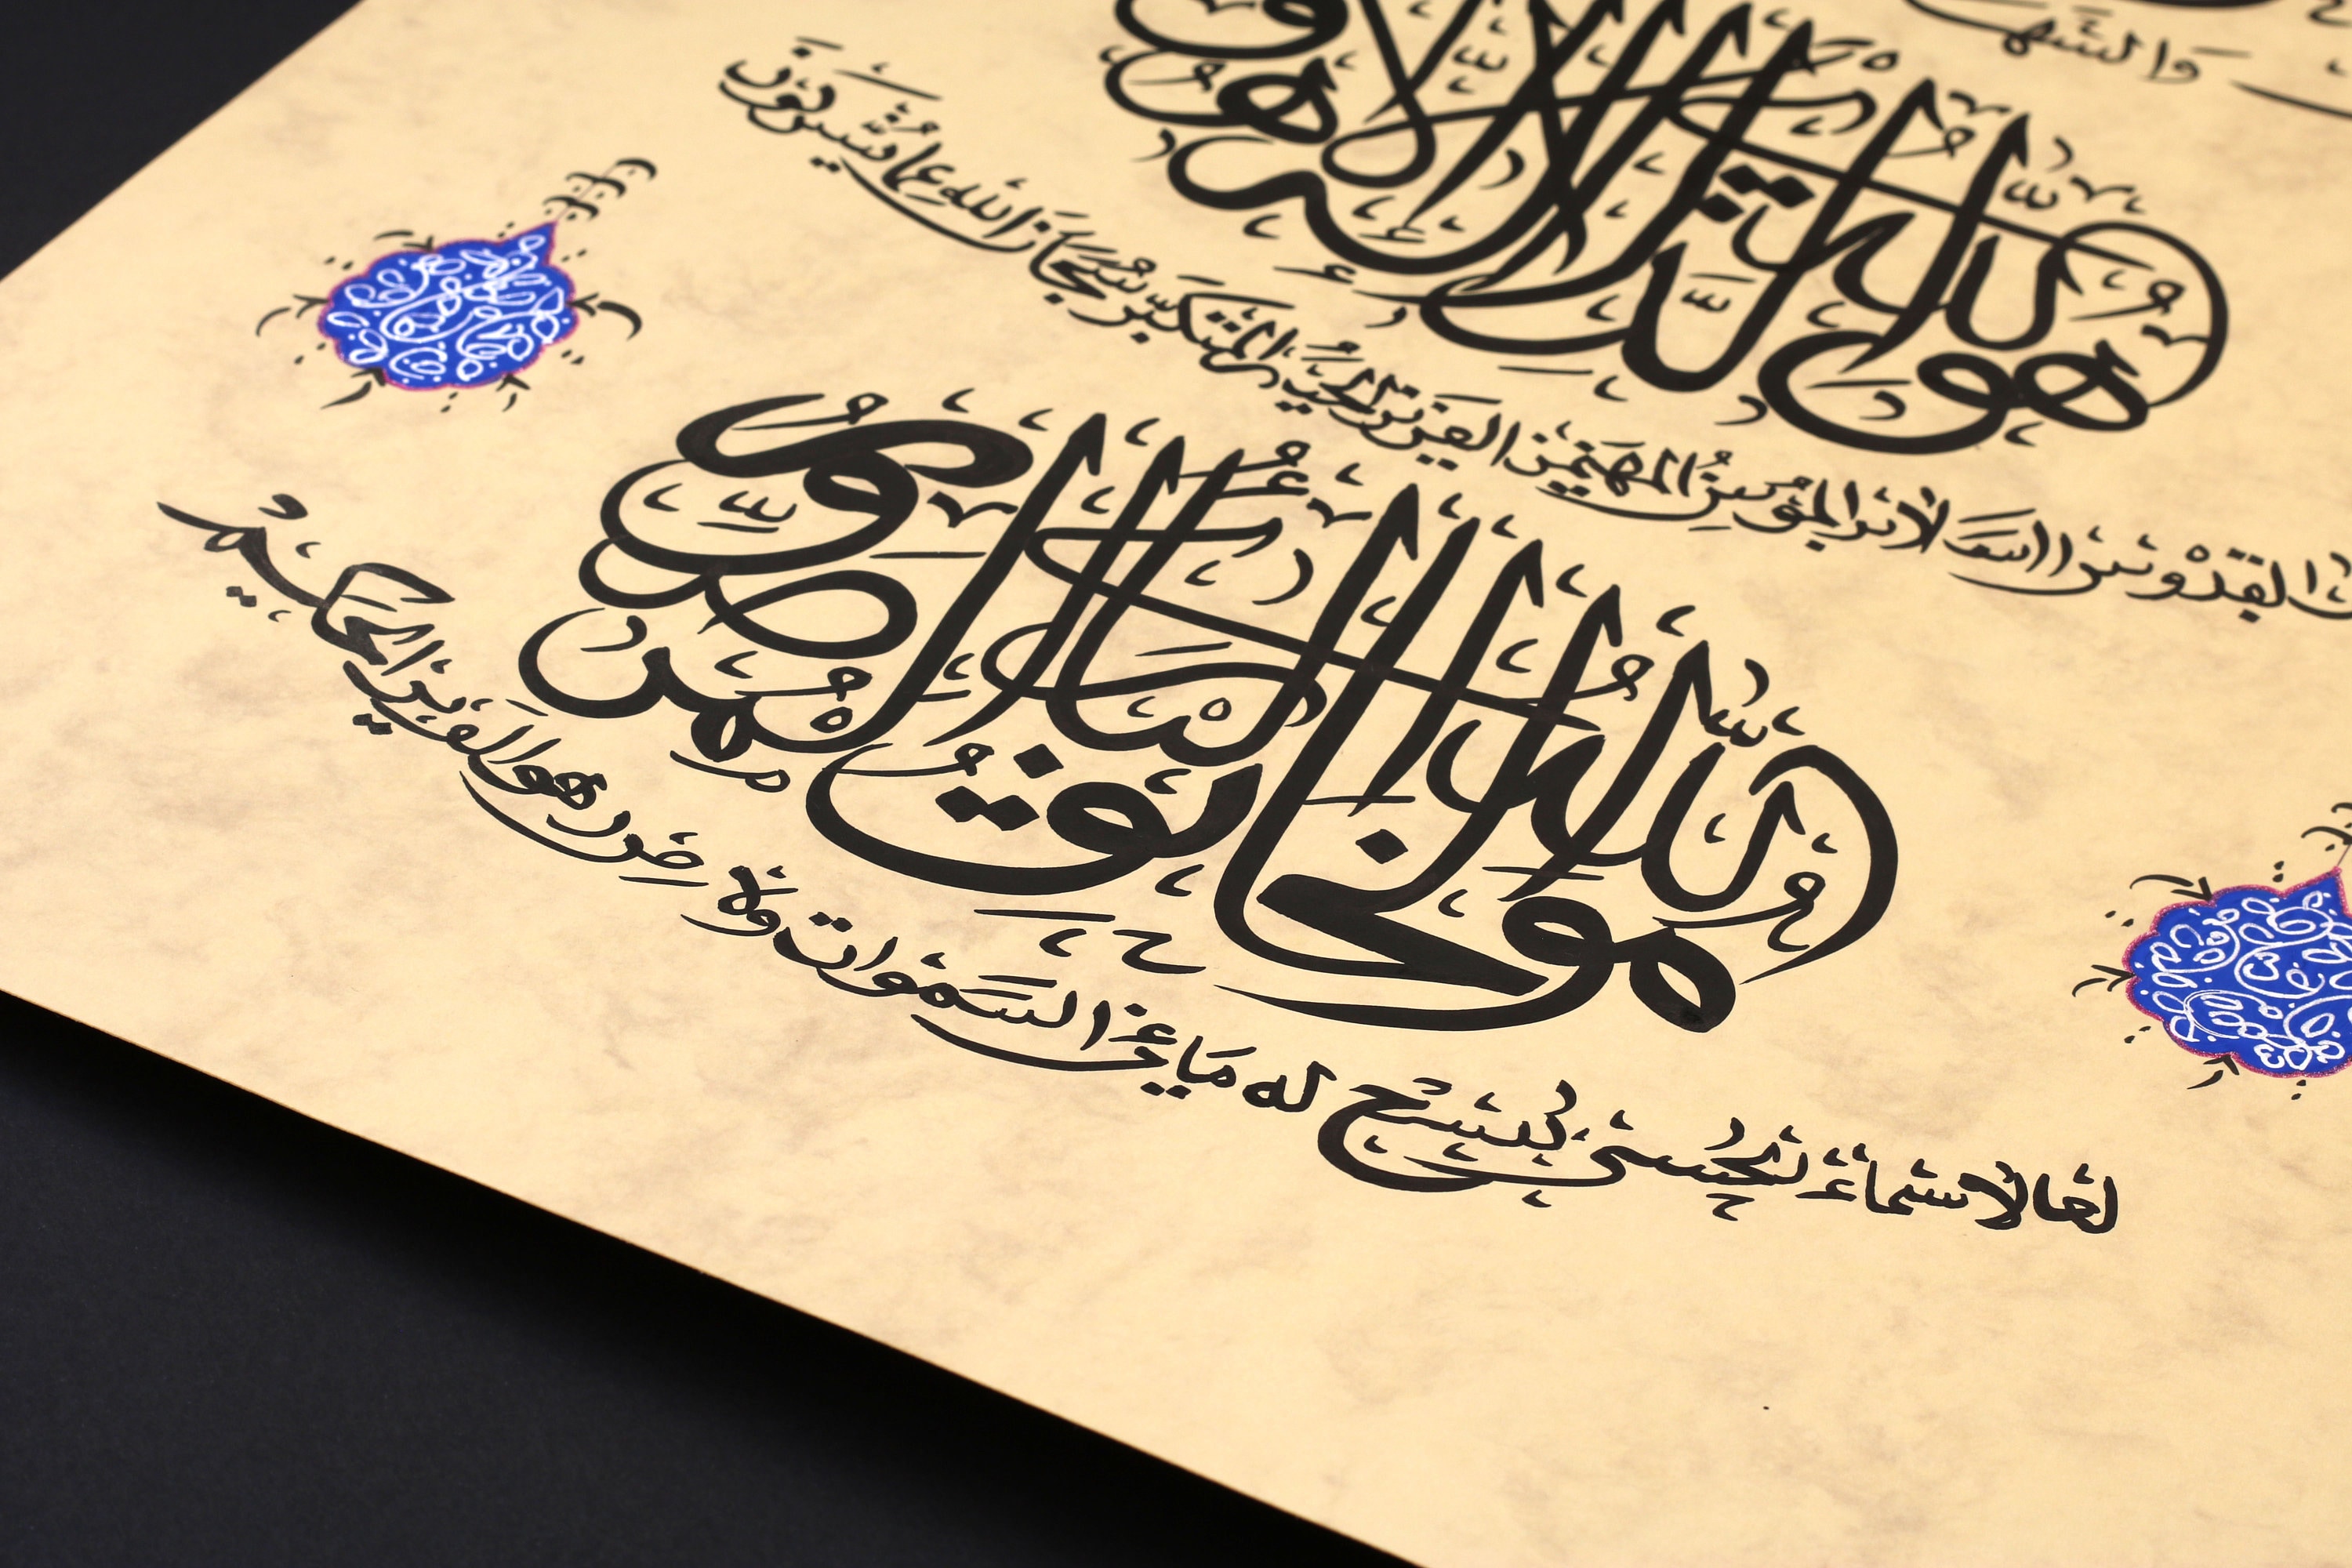 والشها
هو الله الذي لا إله إلا هو
القدوس السلام المؤمن المهيمن العزيز الجبار المتكبر سبحان الله عما يشركون
هو الله الخالق البارئ المصور
له الأسماء الحسنى يسبح له ما في السموات والأرض وهو العزيز الحكيم